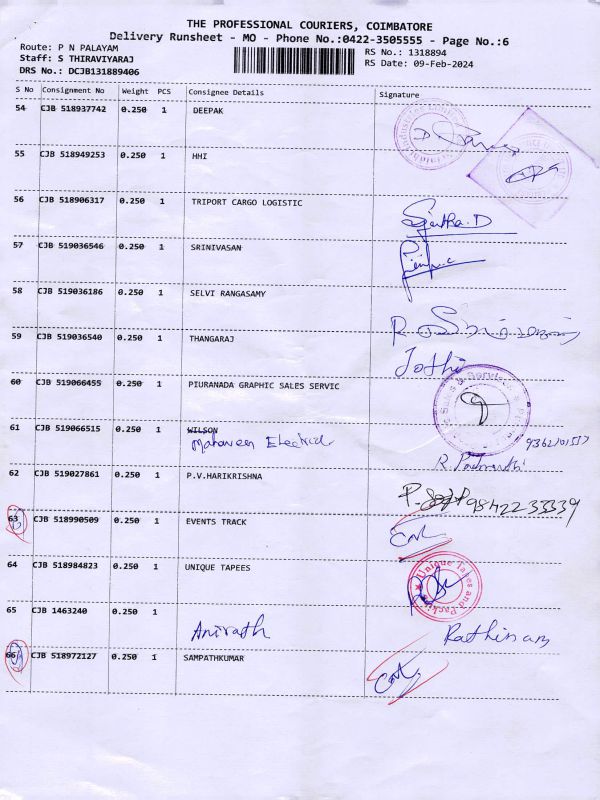 THE PROFESSIONAL COURIERS, COIMBATORE
Delivery Runsheet - MO - Phone No.:0422-3505555 - Page No.:6
Route: P N PALAYAM
RS No.: 1318894
Staff: S THIRAVIYARAJ
RS Date: 09-Feb-2024
DRS No.: DCJB131889406
S No Consignment No Weight PCS Consignee Details Signature
54 CJB 518937742 0.250 1 DEEPAK
55 CJB 518949253 0.250 1 HHI
56 CJB 518906317 0.250 1 TRIPORT CARGO LOGISTIC
Sujatha.D
57 CJB 519036546 0.250 1 SRINIVASAN
58 CJB 519036186 0.250 1 SELVI RANGASAMY
59 CJB 519036540 0.250 1 THANGARAJ
Jothi
60 CJB 519066455 0.250 1 PIURANADA GRAPHIC SALES SERVIC
Sales & Service
61 CJB 519066515 0.250 1 WILSON
Electrical
R.
62 CJB 519027861 0.250 1 P.V.HARIKRISHNA
9842233339
63 CJB 518990509 0.250 1 EVENTS TRACK
64 CJB 518984823 0.250 1 UNIQUE TAPEES
Unique Tapes and
65 CJB 1463240 0.250 1
Anirath Rathinam
66 CJB 518972127 0.250 1 SAMPATHKUMAR